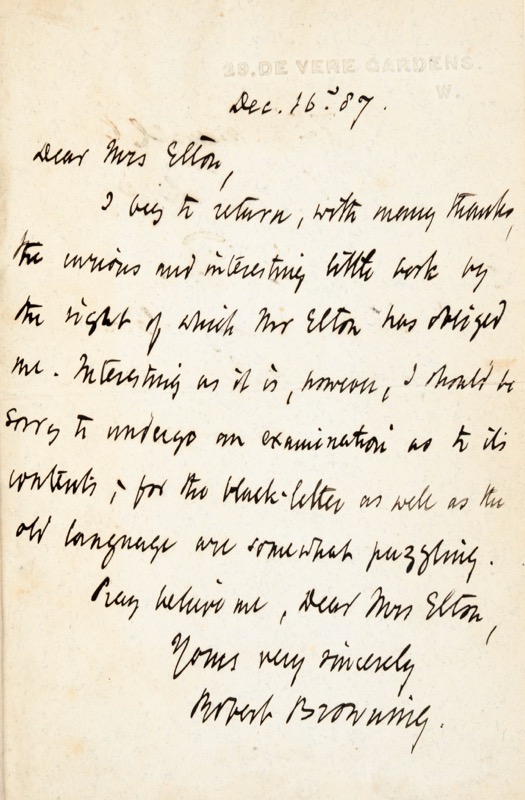 29. DE VERE GARDENS.
W.
Dec. 16. '87.
Dear Mrs Elton,
I beg to return, with many thanks,
the curious and interesting little book by
the sight of which Mr Elton has obliged
me. Interesting as it is, however, I should be
sorry to undergo an examination as to its
contents, - for the black-letter as well as the
old language are somewhat puzzling.
Pray believe me, Dear Mrs Elton,
Yours very sincerely
Robert Browning.